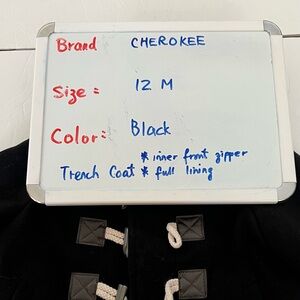 Brand CHEROKEE
Size : 12 M
Color: Black
* inner front zipper
Trench Coat * full lining